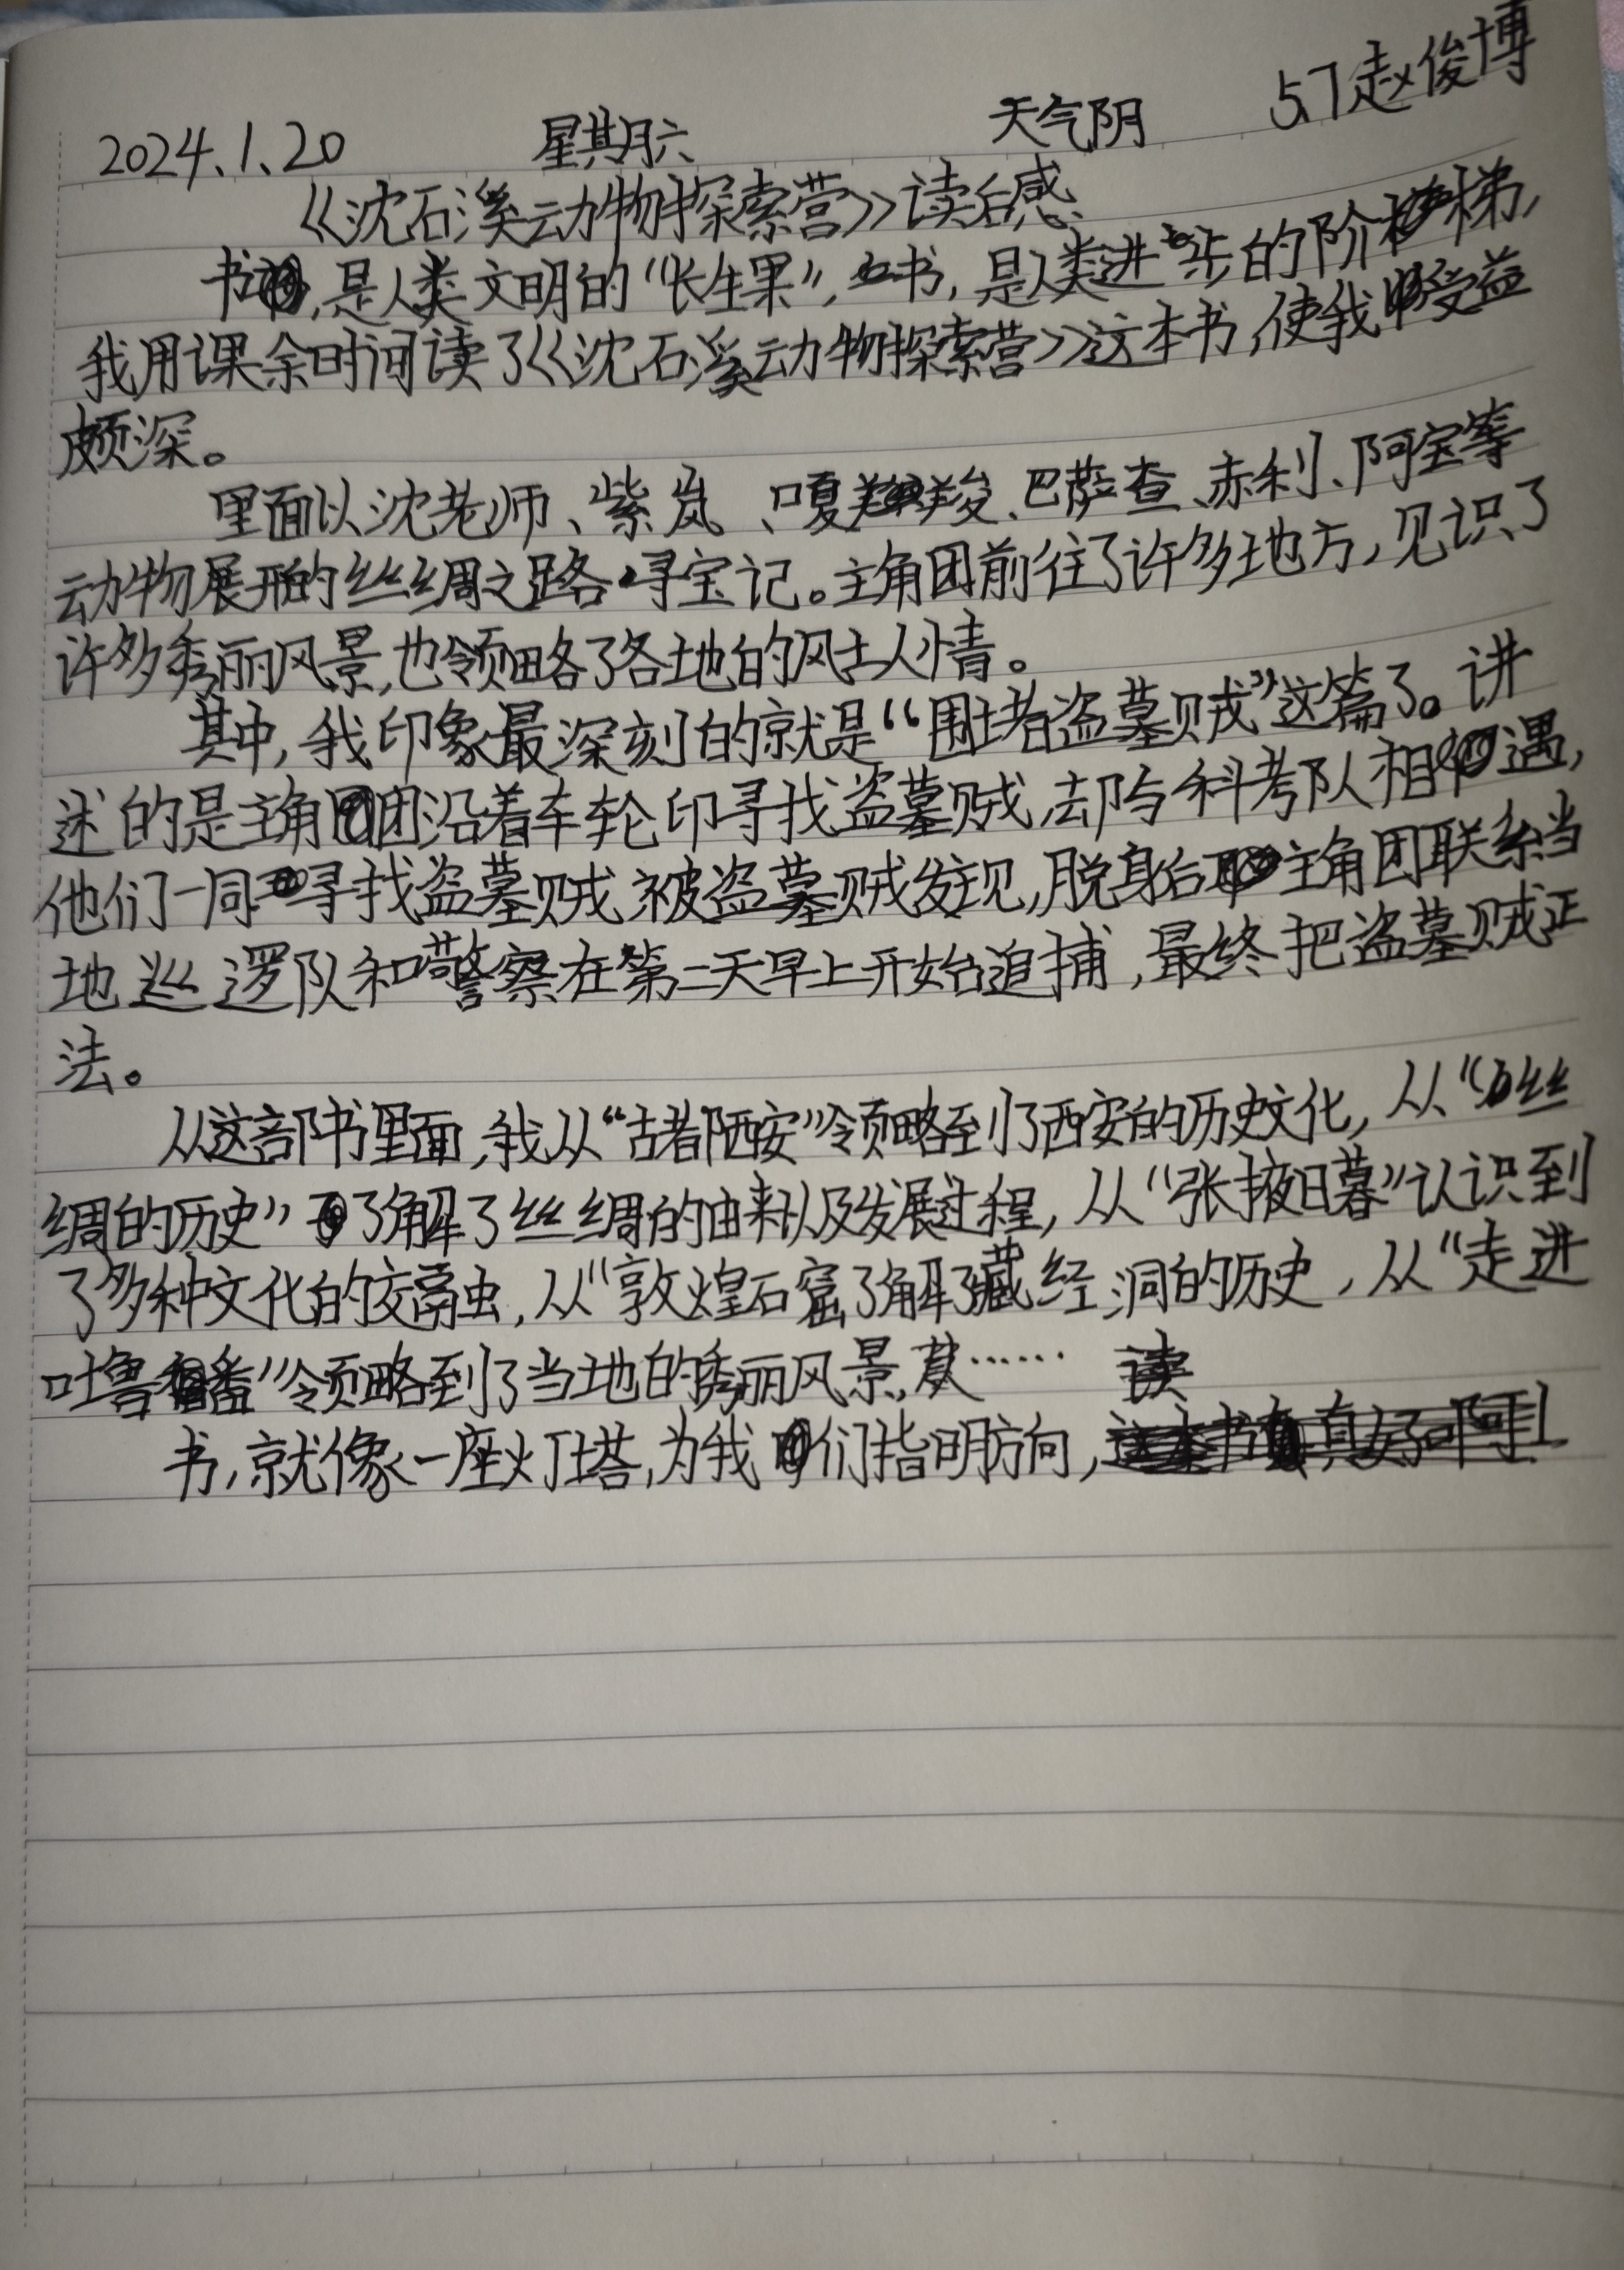 57赵俊博
2024.1.20 星期六 天气阴
《沈石溪动物探索营》读后感
书,是人类文明的“长生果”,书,是人类进步的阶梯,
我用课余时间读了《沈石溪动物探索营》这本书,使我受益
颇深。
里面以沈老师、紫岚、嘎羧、巴萨查、赤利、阿宝等
动物展开的丝绸之路寻宝记。主角团前往了许多地方,见识了
许多秀丽风景,也领略了各地的风土人情。
其中,我印象最深刻的就是“围堵盗墓贼”这篇了。讲
述的是主角团沿着车轮印寻找盗墓贼,却与科考队相遇,
他们一同寻找盗墓贼,被盗墓贼发现,脱身后主角团联系当
地巡逻队和警察在第二天早上开始追捕,最终把盗墓贼正
法。
从这部书里面,我从“古都西安”领略到了西安的历史文化,从“丝
绸的历史”了解了丝绸的由来以及发展过程,从“张掖日暮”认识到
了多种文化的交融,从“敦煌石窟了解了藏经洞的历史,从“走进
吐鲁番”领略到了当地的秀丽风景,……
书,就像一座灯塔,为我们指明方向,